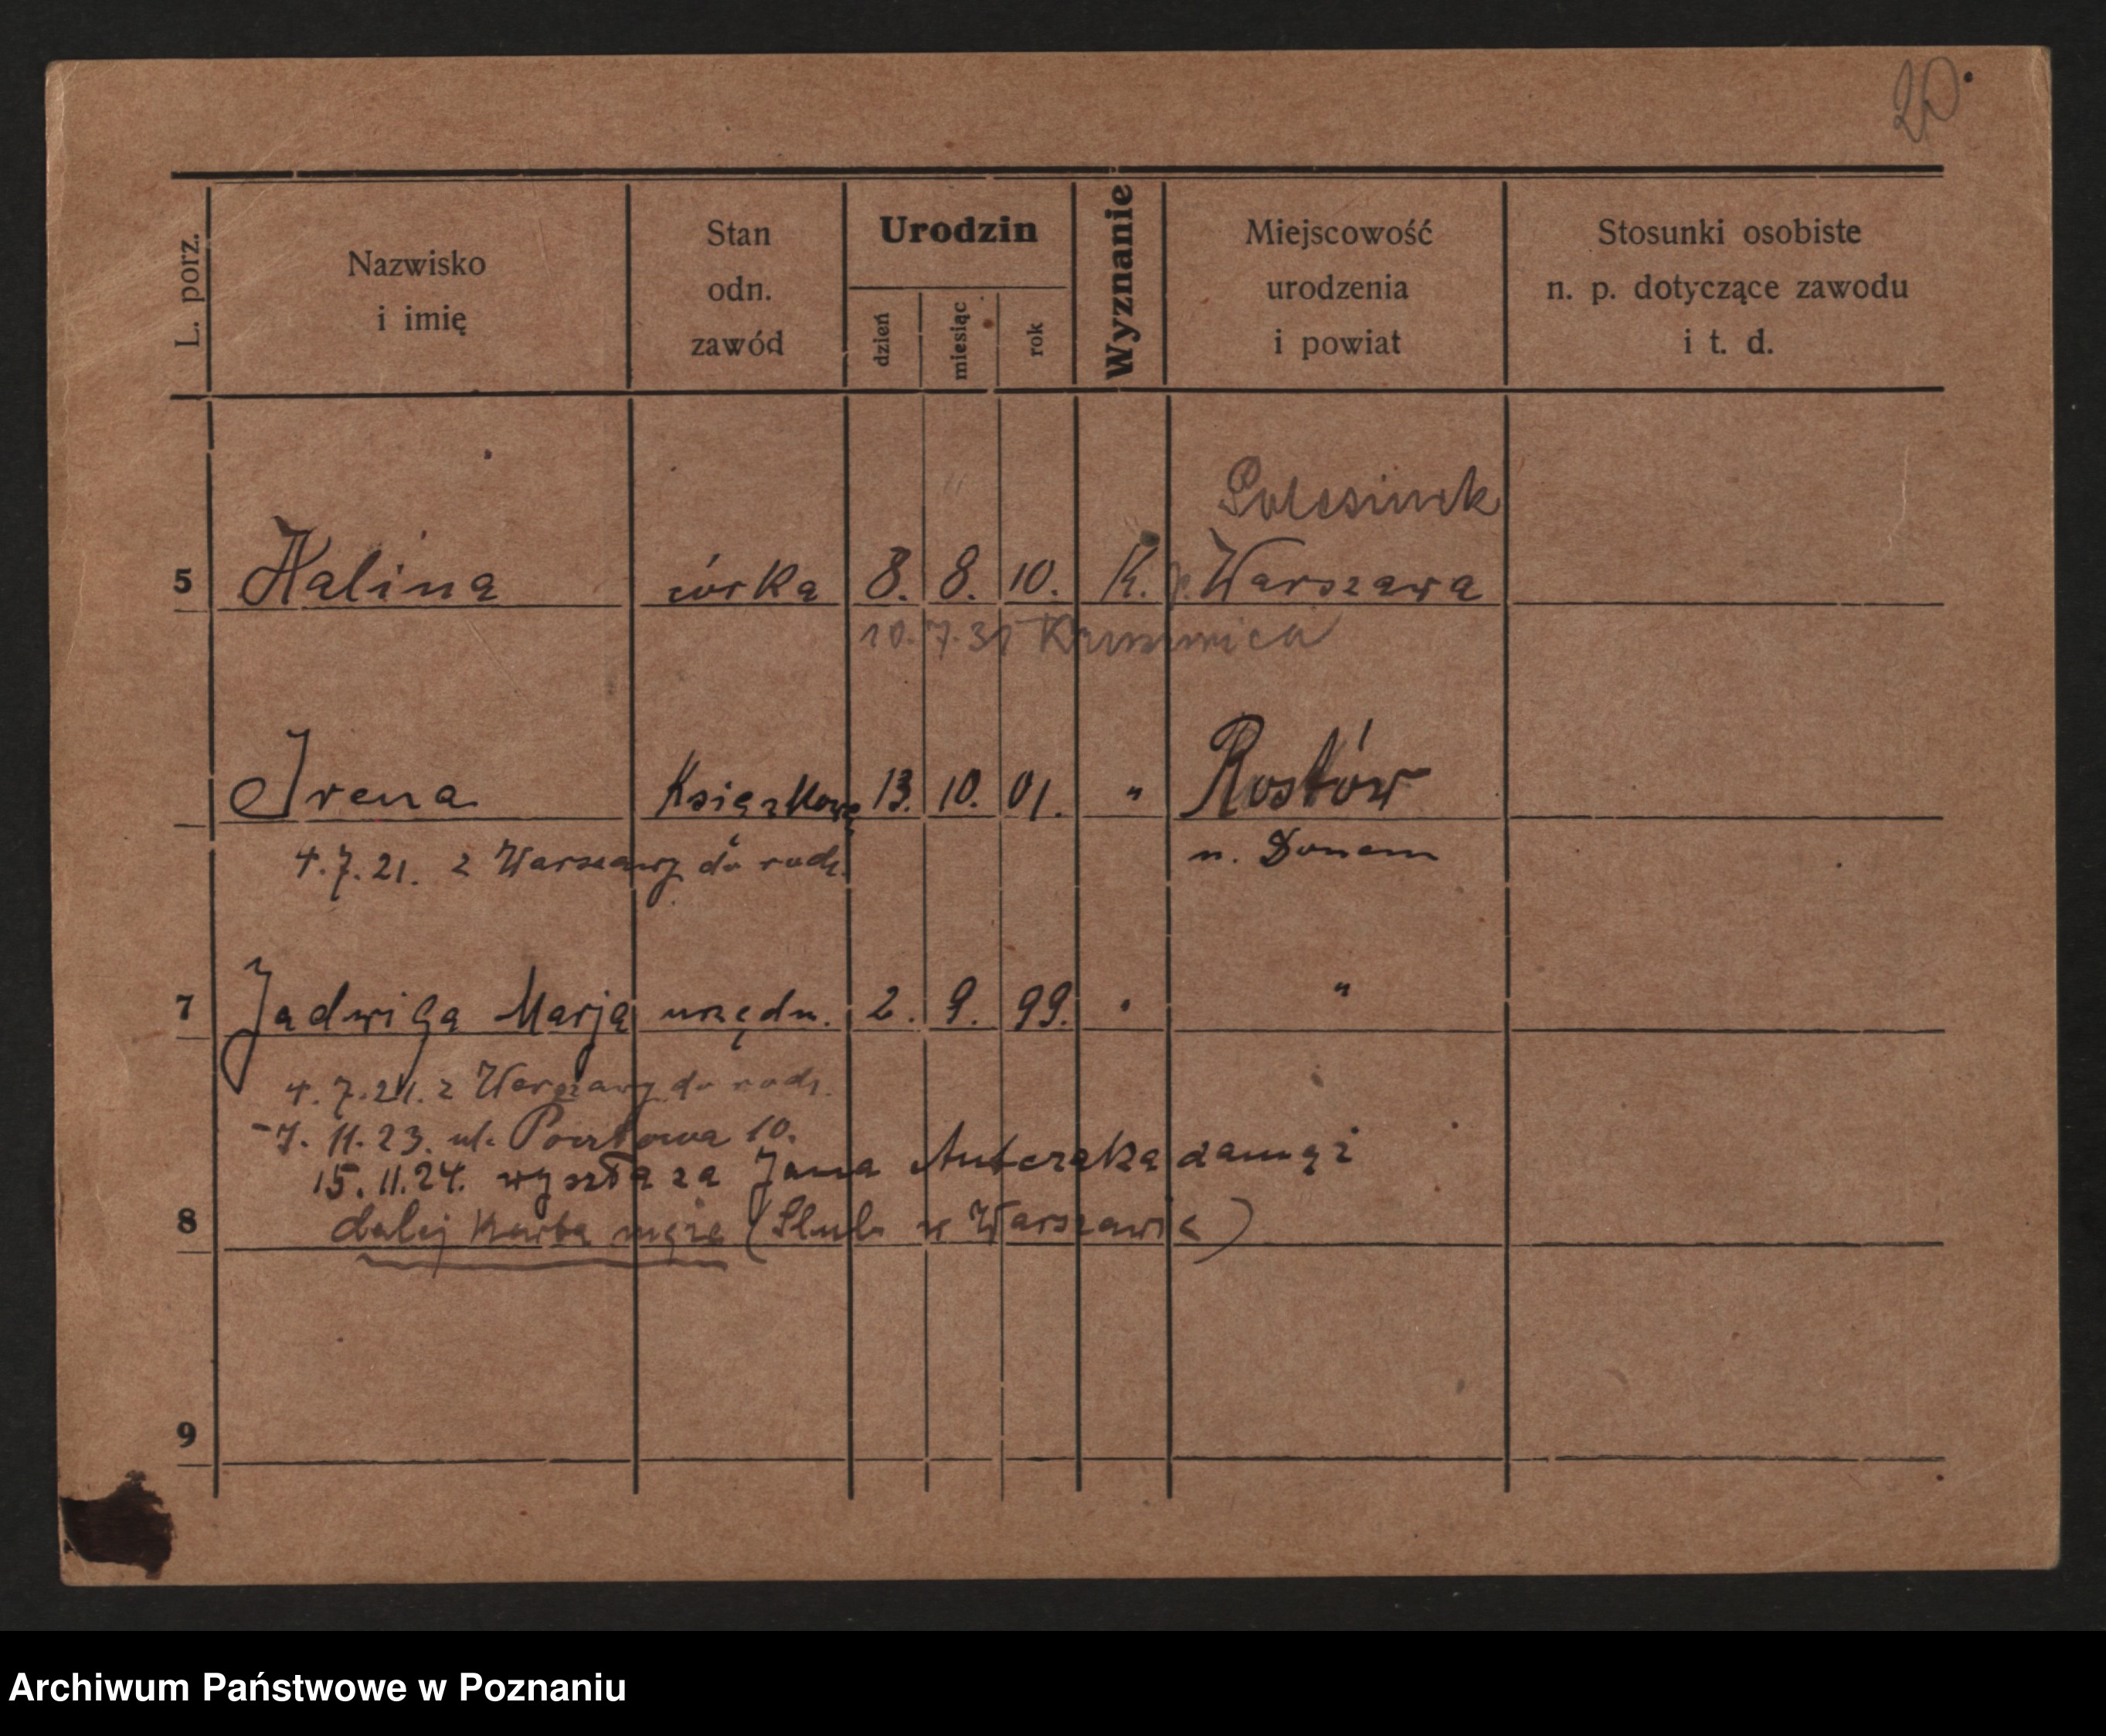 20.
L. porz.
Nazwisko
i imię
Stan
odn.
zawód
Urodzin
dzień
miesiąc
rok
Wyznanie
Miejscowość
urodzenia
i powiat
Stosunki osobiste
n. p. dotyczące zawodu
i t. d.
5 Halina córka 8. 8. 10. K. p. Warszawa
10.7.31 Kruszwica
Irena Książkowa 13. 10. 01. " Rostów
4.7.21. z Warszawy do rodz. n. Donem
7 Jadwiga Marja urzędn. 2. 9. 99. " "
4.7.21. z Warszawy do rodz.
7.11.23. ul. Pocztowa 10.
15.11.24. wyszła za Jana Antczaka zamąż
8 dalej karta męża (Ślub w Warszawie)
9
Archiwum Państwowe w Poznaniu